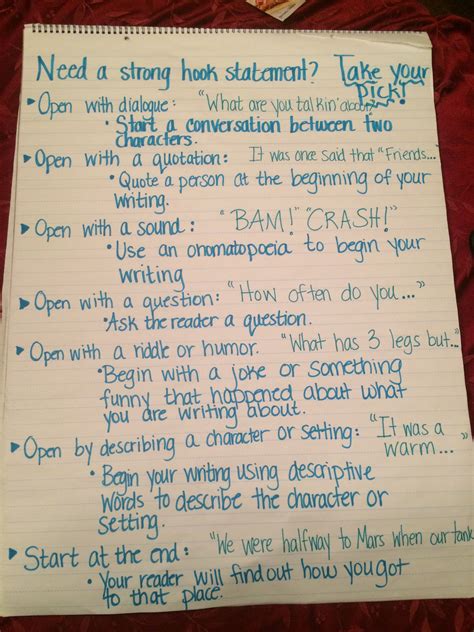 Need a strong hook statement? Take your
pick!
Open with dialogue: "What are you talkin' about?"
• Start a conversation between two
characters.
Open with a quotation: It was once said that "Friends...
• Quote a person at the beginning of your
writing.
Open with a sound: "BAM!" "CRASH!"
• Use an onomatopoeia to begin your
writing
Open with a question: "How often do you..."
• Ask the reader a question.
Open with a riddle or humor. "What has 3 legs but..."
• Begin with a joke or something
funny that happened about what
you are writing about.
Open by describing a character or setting: "It was a
warm..."
• Begin your writing using descriptive
words to describe the character or
setting.
Start at the end: "We were halfway to Mars when our tank
• Your reader will find out how you got
to that place.